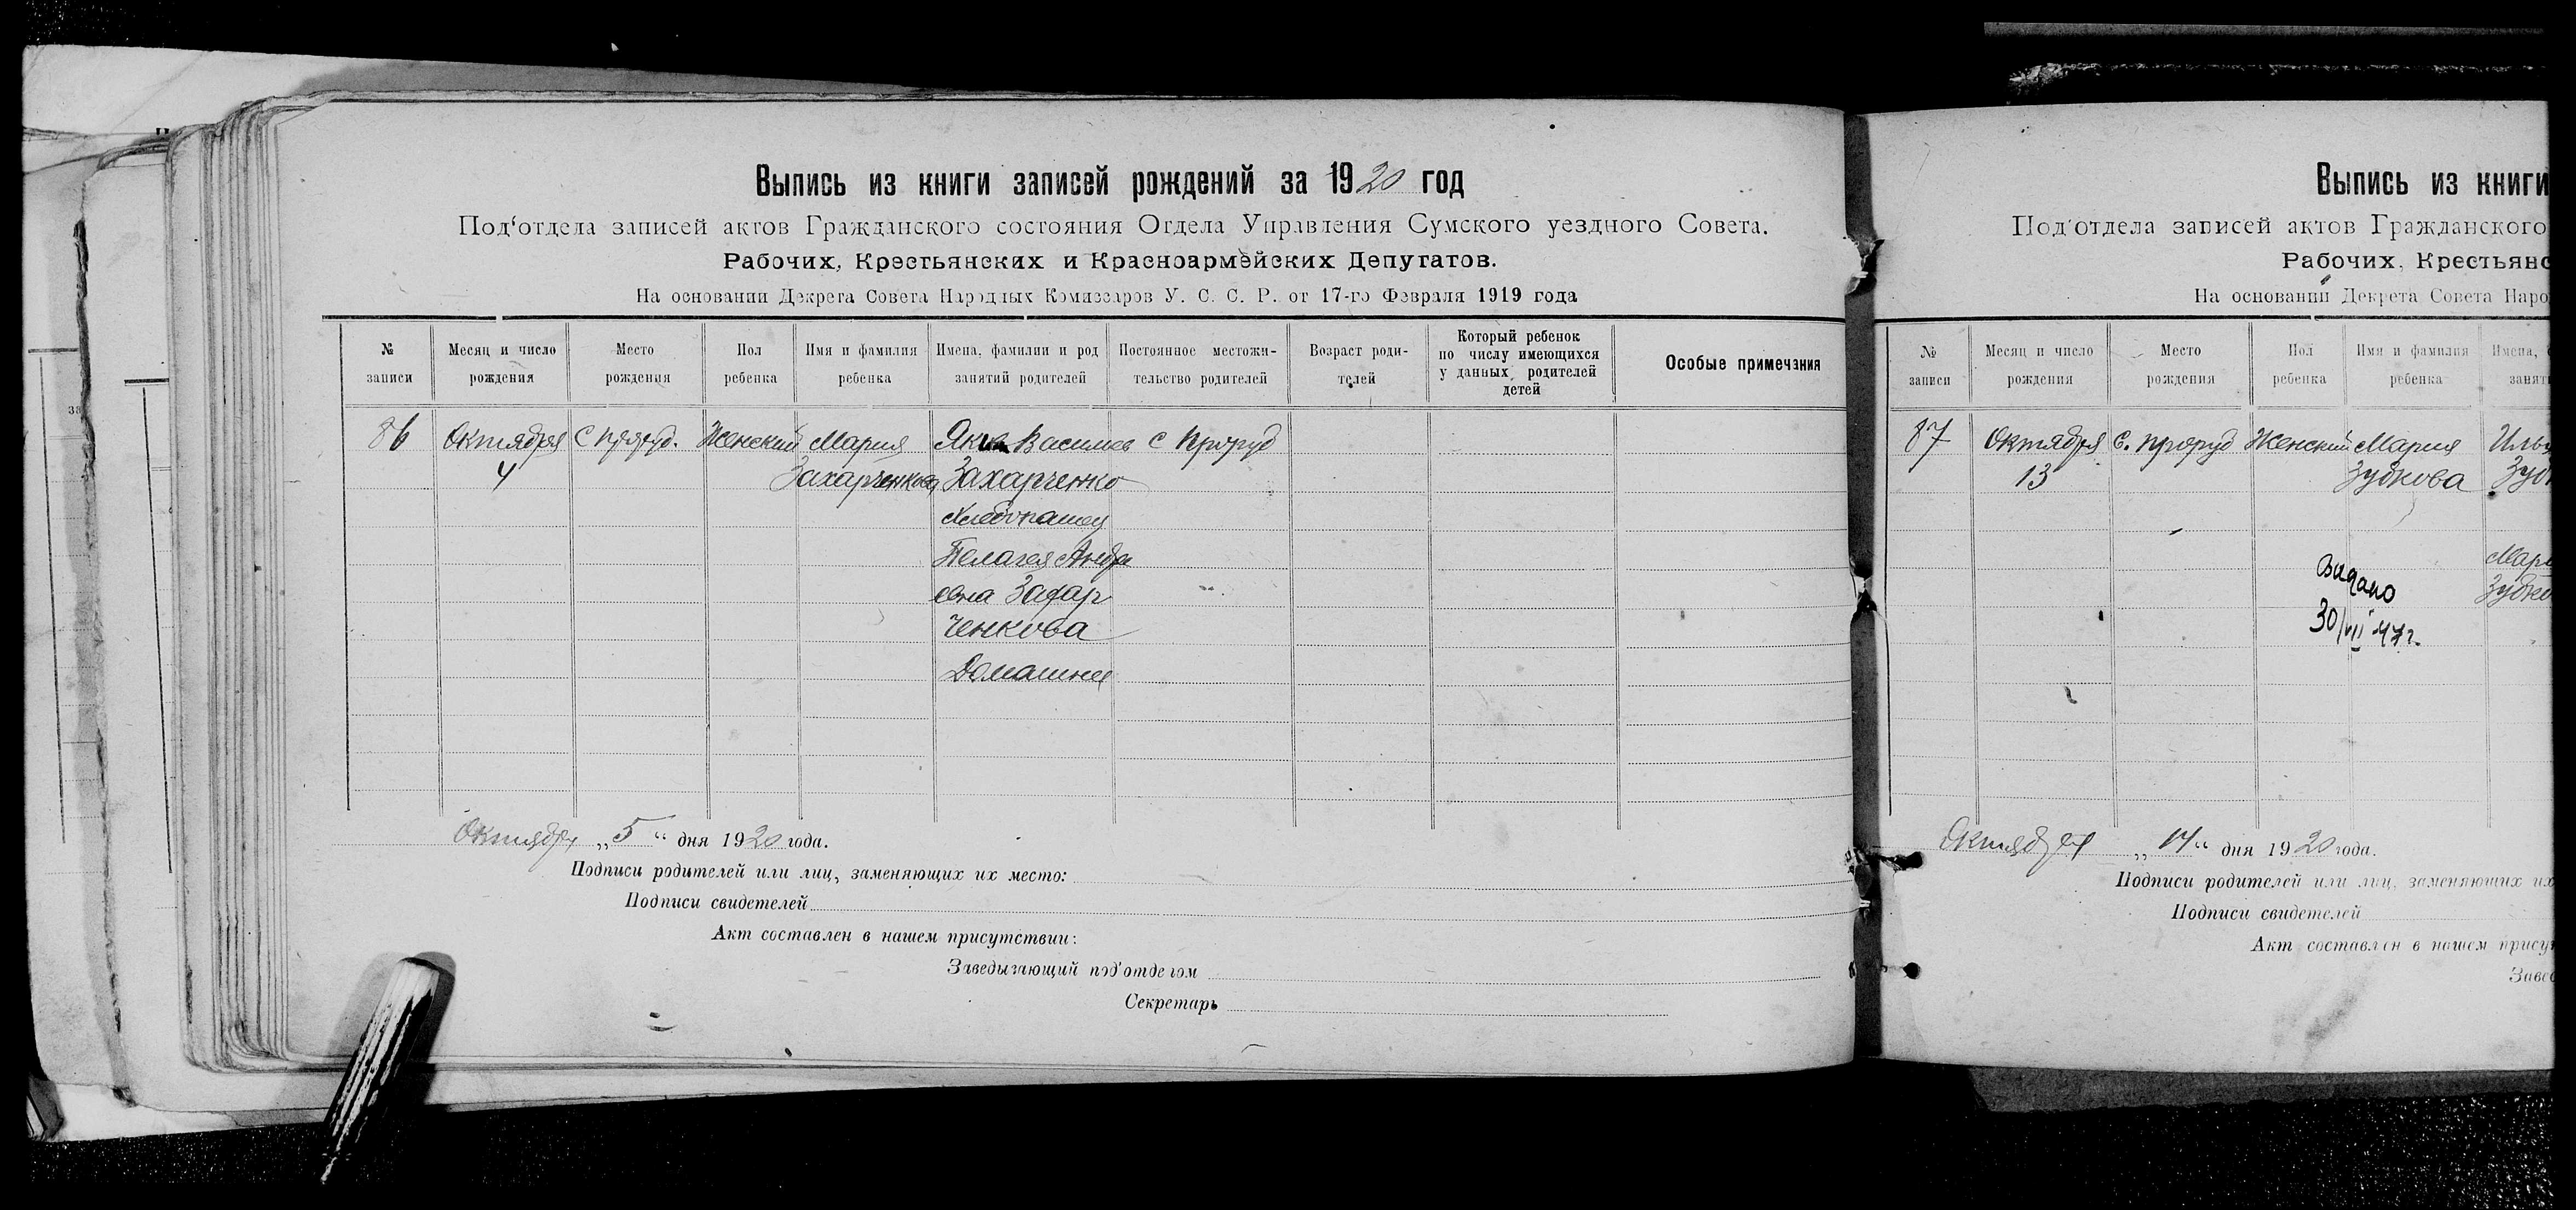 Выпись из книги записей рождений за 1920 год
Под'отдела записей актов Гражданского состояния Отдела Управления Сумского уездного Совета.
Рабочих, Крестьянских и Красноармейских Депутатов.
На основании Декрета Совета Народных Комиссаров У. С. С. Р. от 17-го Февраля 1919 года
№ записи
Месяц и число рождения
Место рождения
Пол ребенка
Имя и фамилия ребенка
Имена, фамилии и род занятий родителей
Постоянное местожительство родителей
Возраст родителей
Который ребенок по числу имеющихся у данных родителей детей
Особые примечания
86
Октября
4
С Проруб.
Женский
Мария
Захарченкова
Яков Васильев
Захарченко
Хлебопашец
Пелагея Андре
евна Захар
ченкова
Домашнее
С Проруб
Октября „5“ дня 1920 года.
Подписи родителей или лиц, заменяющих их место:
Подписи свидетелей
Акт составлен в нашем присутствии:
Заведывающий под'отделом
Секретарь
Выпись из книги
Под'отдела записей актов Гражданского
Рабочих, Крестьянс
На основании Декрета Совета Наро
№ записи
Месяц и число рождения
Место рождения
Пол ребенка
Имя и фамилия ребенка
Имена,
занят
87
Октября
13
С. Проруб
Женский
Мария
Зубкова
Иль
Зуб
Мар
Зубко
Видано
30/VII 47г.
Октября „14“ дня 1920 года.
Подписи родителей или лиц, заменяющих их
Подписи свидетелей
Акт составлен в нашем присут
Завед